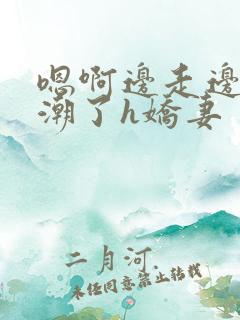 嗯啊邊走邊
潮了h嬌妻
二月河.
未经同意禁止转载